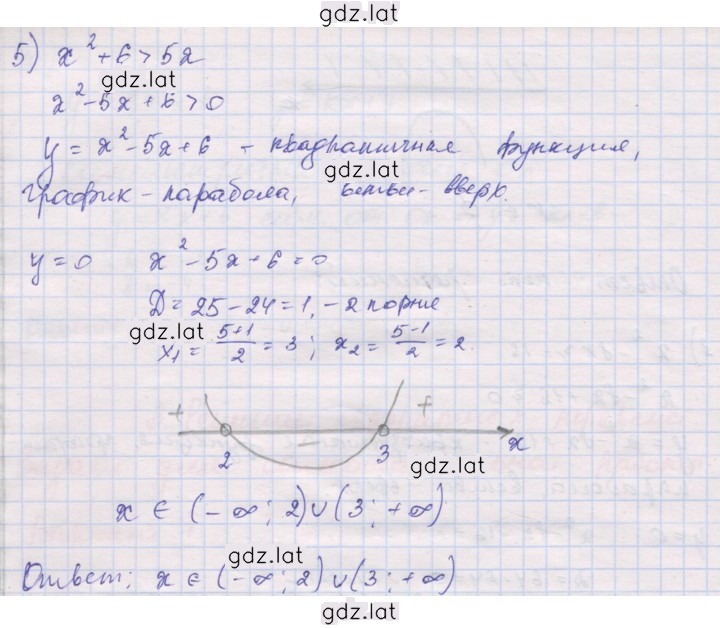 gdz.lat
5) x² + 6 > 5x
gdz.lat
x² - 5x + 6 > 0
y = x² - 5x + 6 - квадратичная функция,
gdz.lat
график - парабола, ветви - вверх.
y = 0 x² - 5x + 6 = 0
Д = 25 - 24 = 1, - 2 корня
gdz.lat
x₁ = (5+1)/2 = 3 ; x₂ = (5-1)/2 = 2.
+ - +
2 3 x
gdz.lat
x ∈ (-∞; 2) ∪ (3; +∞)
gdz.lat
Ответ: x ∈ (-∞; 2) ∪ (3; +∞)
gdz.lat